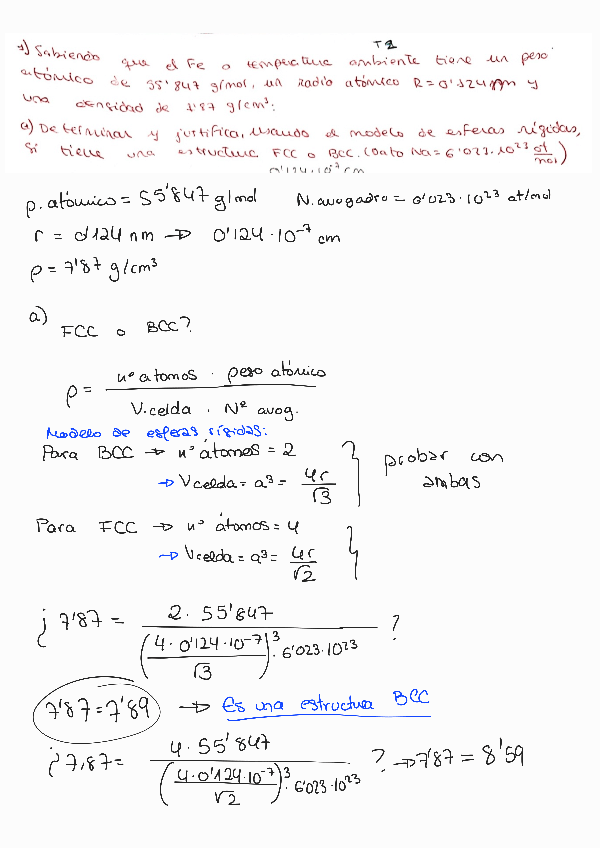 T2
1) Sabiendo que el Fe a temperatura ambiente tiene un peso
atómico de 55'847 g/mol, un radio atómico R=0'124 nm y
una densidad de 7'87 g/cm³:
a) Determinar y justifica, usando el modelo de esferas rígidas,
si tiene una estructura FCC o BCC. (Dato Na=6'023·10²³ at/mol)
0'124·10⁻⁷ cm
p.atómico = 55'847 g/mol N.avogadro = 6'023·10²³ at/mol
r = 0'124 nm → 0'124·10⁻⁷ cm
ρ = 7'87 g/cm³
a)
FCC o BCC?
ρ = nº atomos · peso atómico / V.celda · Nº avog.
Modelo de esferas rígidas:
Para BCC → nº átomos = 2
→ Vcelda = a³ = 4r/√3
probar con
ambas
Para FCC → nº átomos = 4
→ Vcelda = a³ = 4r/√2
¿ 7'87 = 2·55'847 / (4·0'124·10⁻⁷/√3)³·6'023·10²³ ?
7'87=7'89 → Es una estructura BCC
¿ 7,87 = 4·55'847 / (4·0'124·10⁻⁷/√2)³·6'023·10²³ ? → 7'87 = 8'59